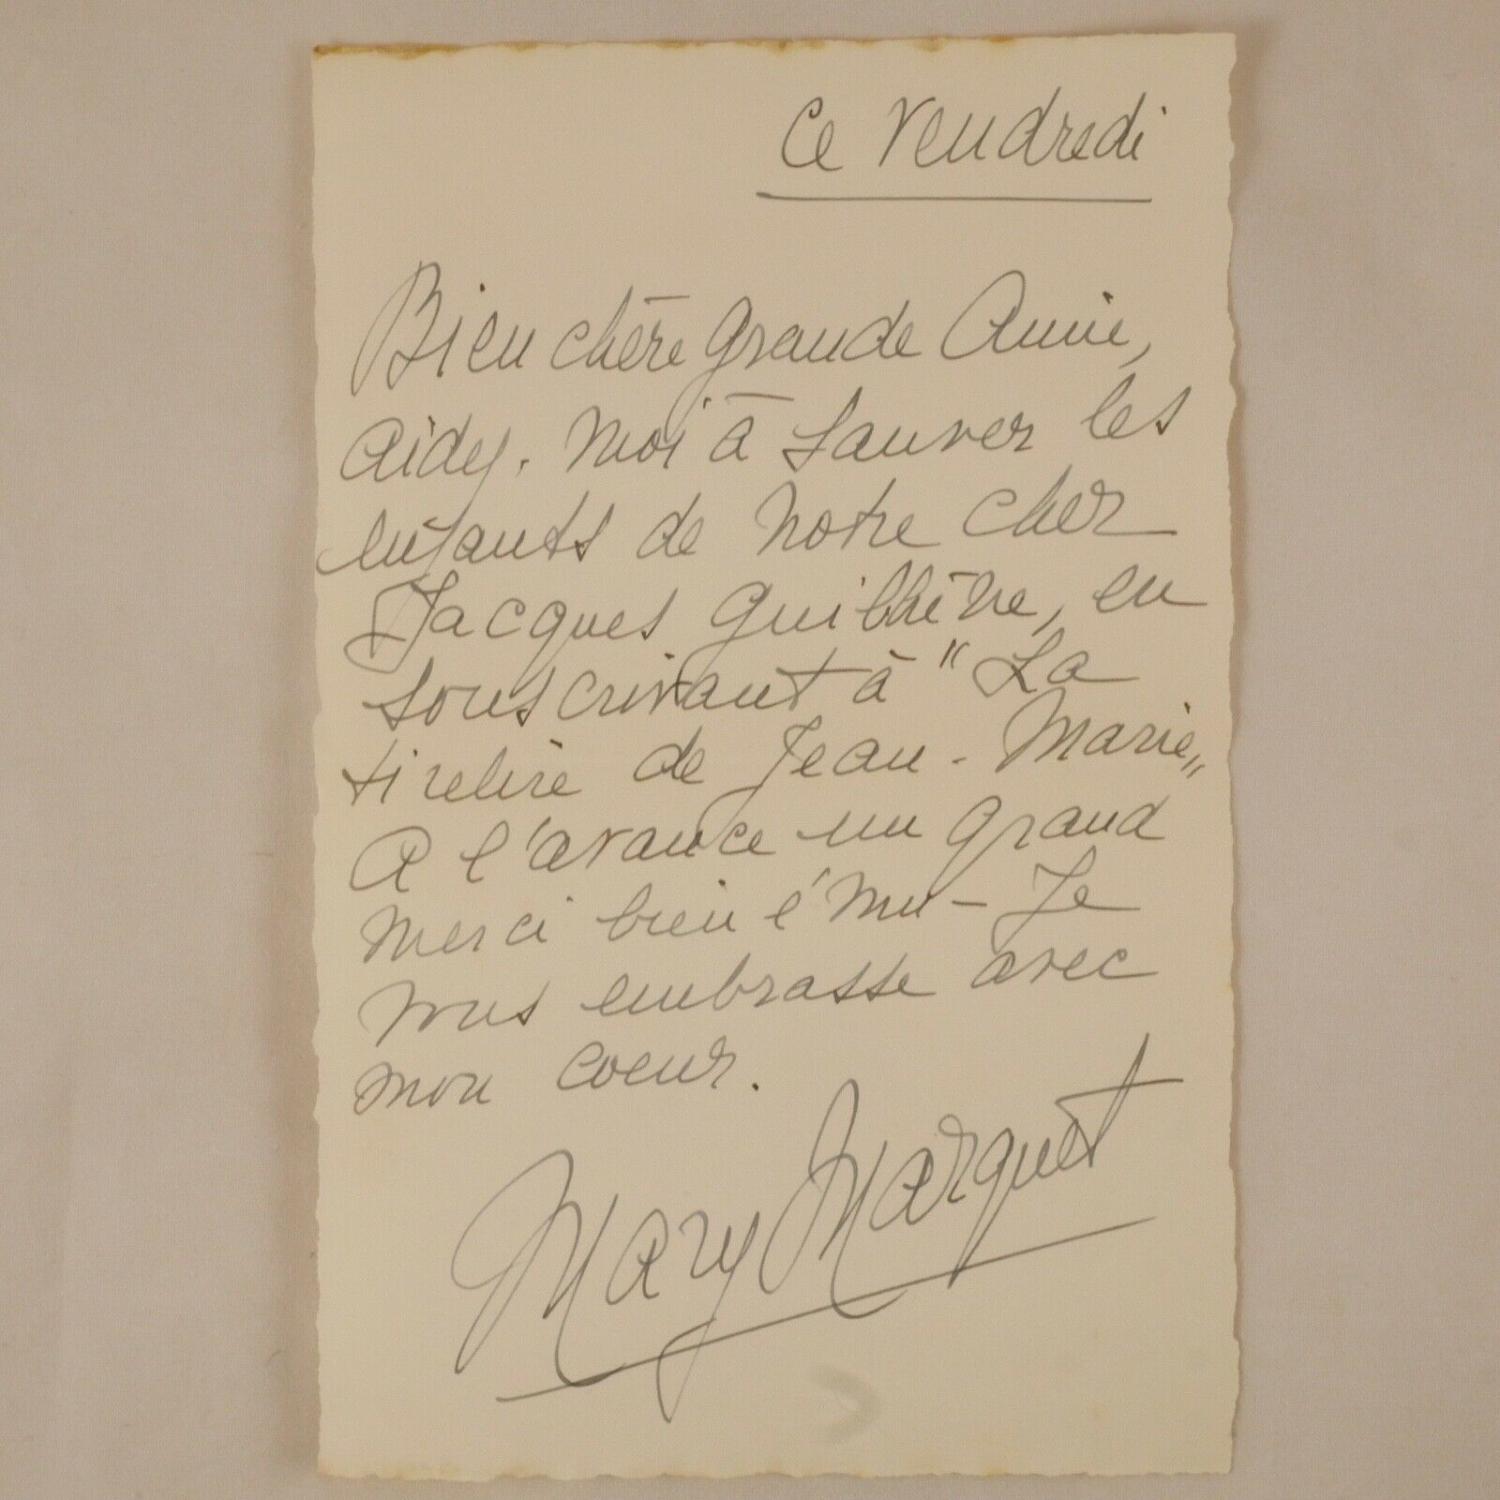 Ce Vendredi
Bien chère grande Amie,
Aidez-moi à sauver les
enfants de notre cher
Jacques Guilhène, en
souscrivant à "La
tirelire de Jean-Marie"
A l'avance un grand
merci bien ému - Je
vous embrasse avec
mon coeur.
Mary Marquet